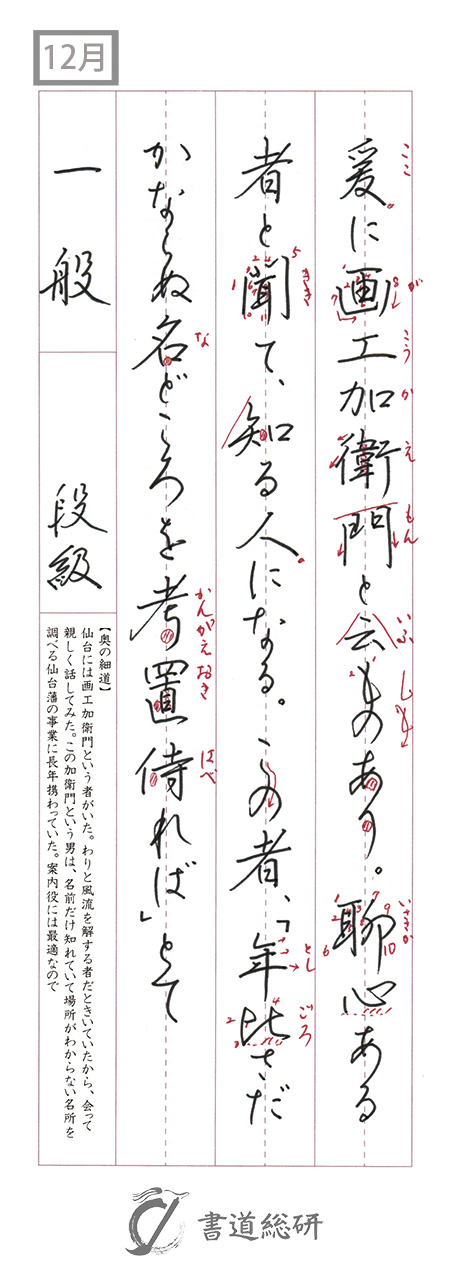 12月
爰に画工加衛門と云ものあり。聊心ある
者と聞て、知る人になる。この者、「年比さだ
かならぬ名どころを考置侍れば」とて
ここ
が
こう
か
え
もん
いふ
しも
いささか
きき
とし
ごろ
な
かんがえおき
はべ
一般
段級
【奥の細道】
仙台には画工加衛門という者がいた。わりと風流を解する者だときいていたから、会って
親しく話してみた。この加衛門という男は、名前だけ知れていて場所がわからない名所を
調べる仙台藩の事業に長年携わっていた。案内役には最適なので
書道総研